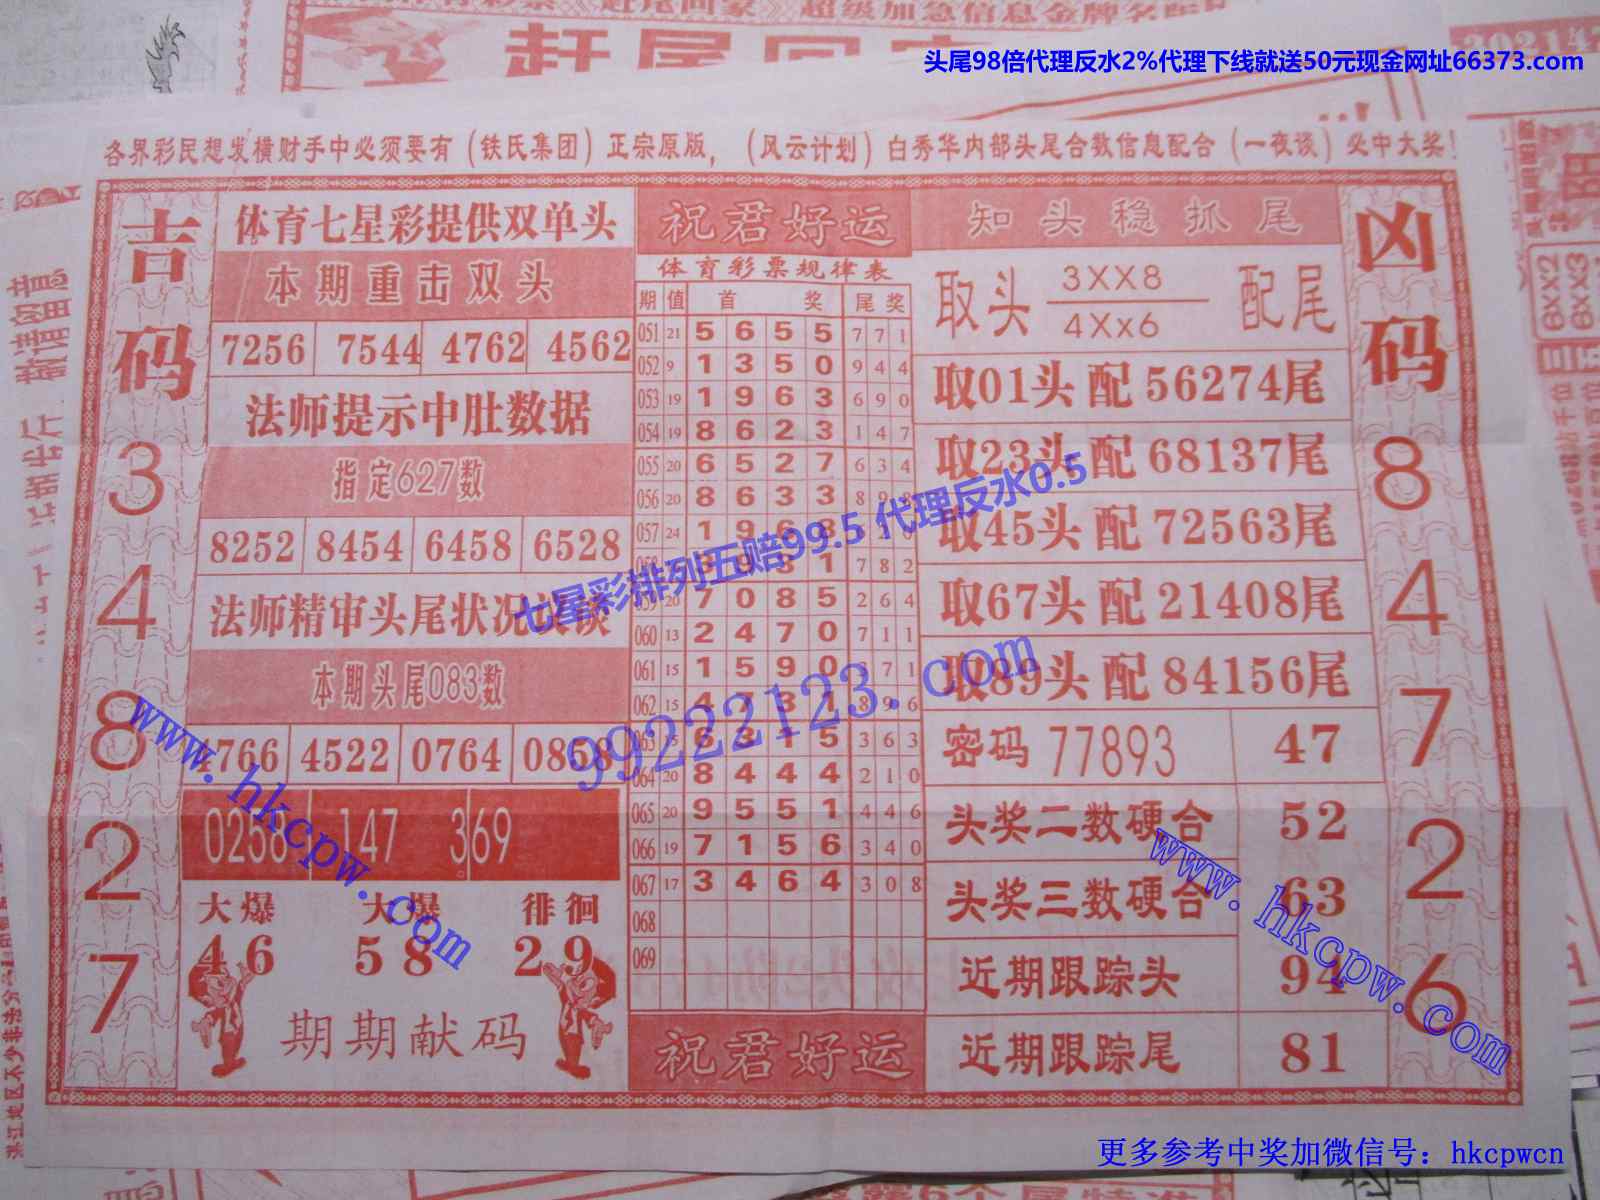 头尾98倍代理反水2%代理下线就送50元现金网址66373.com
各界彩民想发横财手中必须要有(铁氏集团)正宗原版,(风云计划)白秀华内部头尾合数信息配合(一夜谈)必中大奖!
吉码
3
4
8
2
7
体育七星彩提供双单头
本期重击双头
7256 7544 4762 4562
法师提示中肚数据
指定627数
8252 8454 6458 6528
法师精审头尾状况
本期头尾083数
4522 0764 0858
0258 147 369
大爆 大爆 徘徊
46 58 29
期期献码
祝君好运
体育彩票规律表
期 值 首 奖 尾 奖
051 21 5 6 5 5 7 7 1
052 9 1 3 5 0 9 4 4
053 19 1 9 6 3 6 9 0
054 19 8 6 2 3 1 4 7
055 20 6 5 2 7 6 3 4
056 20 8 6 3 3 8 9
057 24 1 9 6 8
7 8 2
20 7 0 8 5 2 6 4
060 13 2 4 7 0 7 1 1
061 15 1 5 9 0 7 1
062 15 4 7 3 1 8 9 6
3 6 3
064 20 8 4 4 4 2 1 0
065 20 9 5 5 1 4 4 6
066 19 7 1 5 6 3 4 0
067 17 3 4 6 4 3 0 8
068
069
祝君好运
知头稳抓尾
取头 3XX8 4Xx6 配尾
取01头 配 56274尾
取23头 配 68137尾
取45头 配 72563尾
取67头 配 21408尾
取89头 配 84156尾
密码 77893 47
头奖二数硬合 52
头奖三数硬合 63
近期跟踪头 94
近期跟踪尾 81
凶码
8
4
7
2
6
七星彩排列五赔99.5 代理反水0.5
99222123.com
www.hkcpw.com
www.hkcpw.com
更多参考中奖加微信号：hkcpwcn